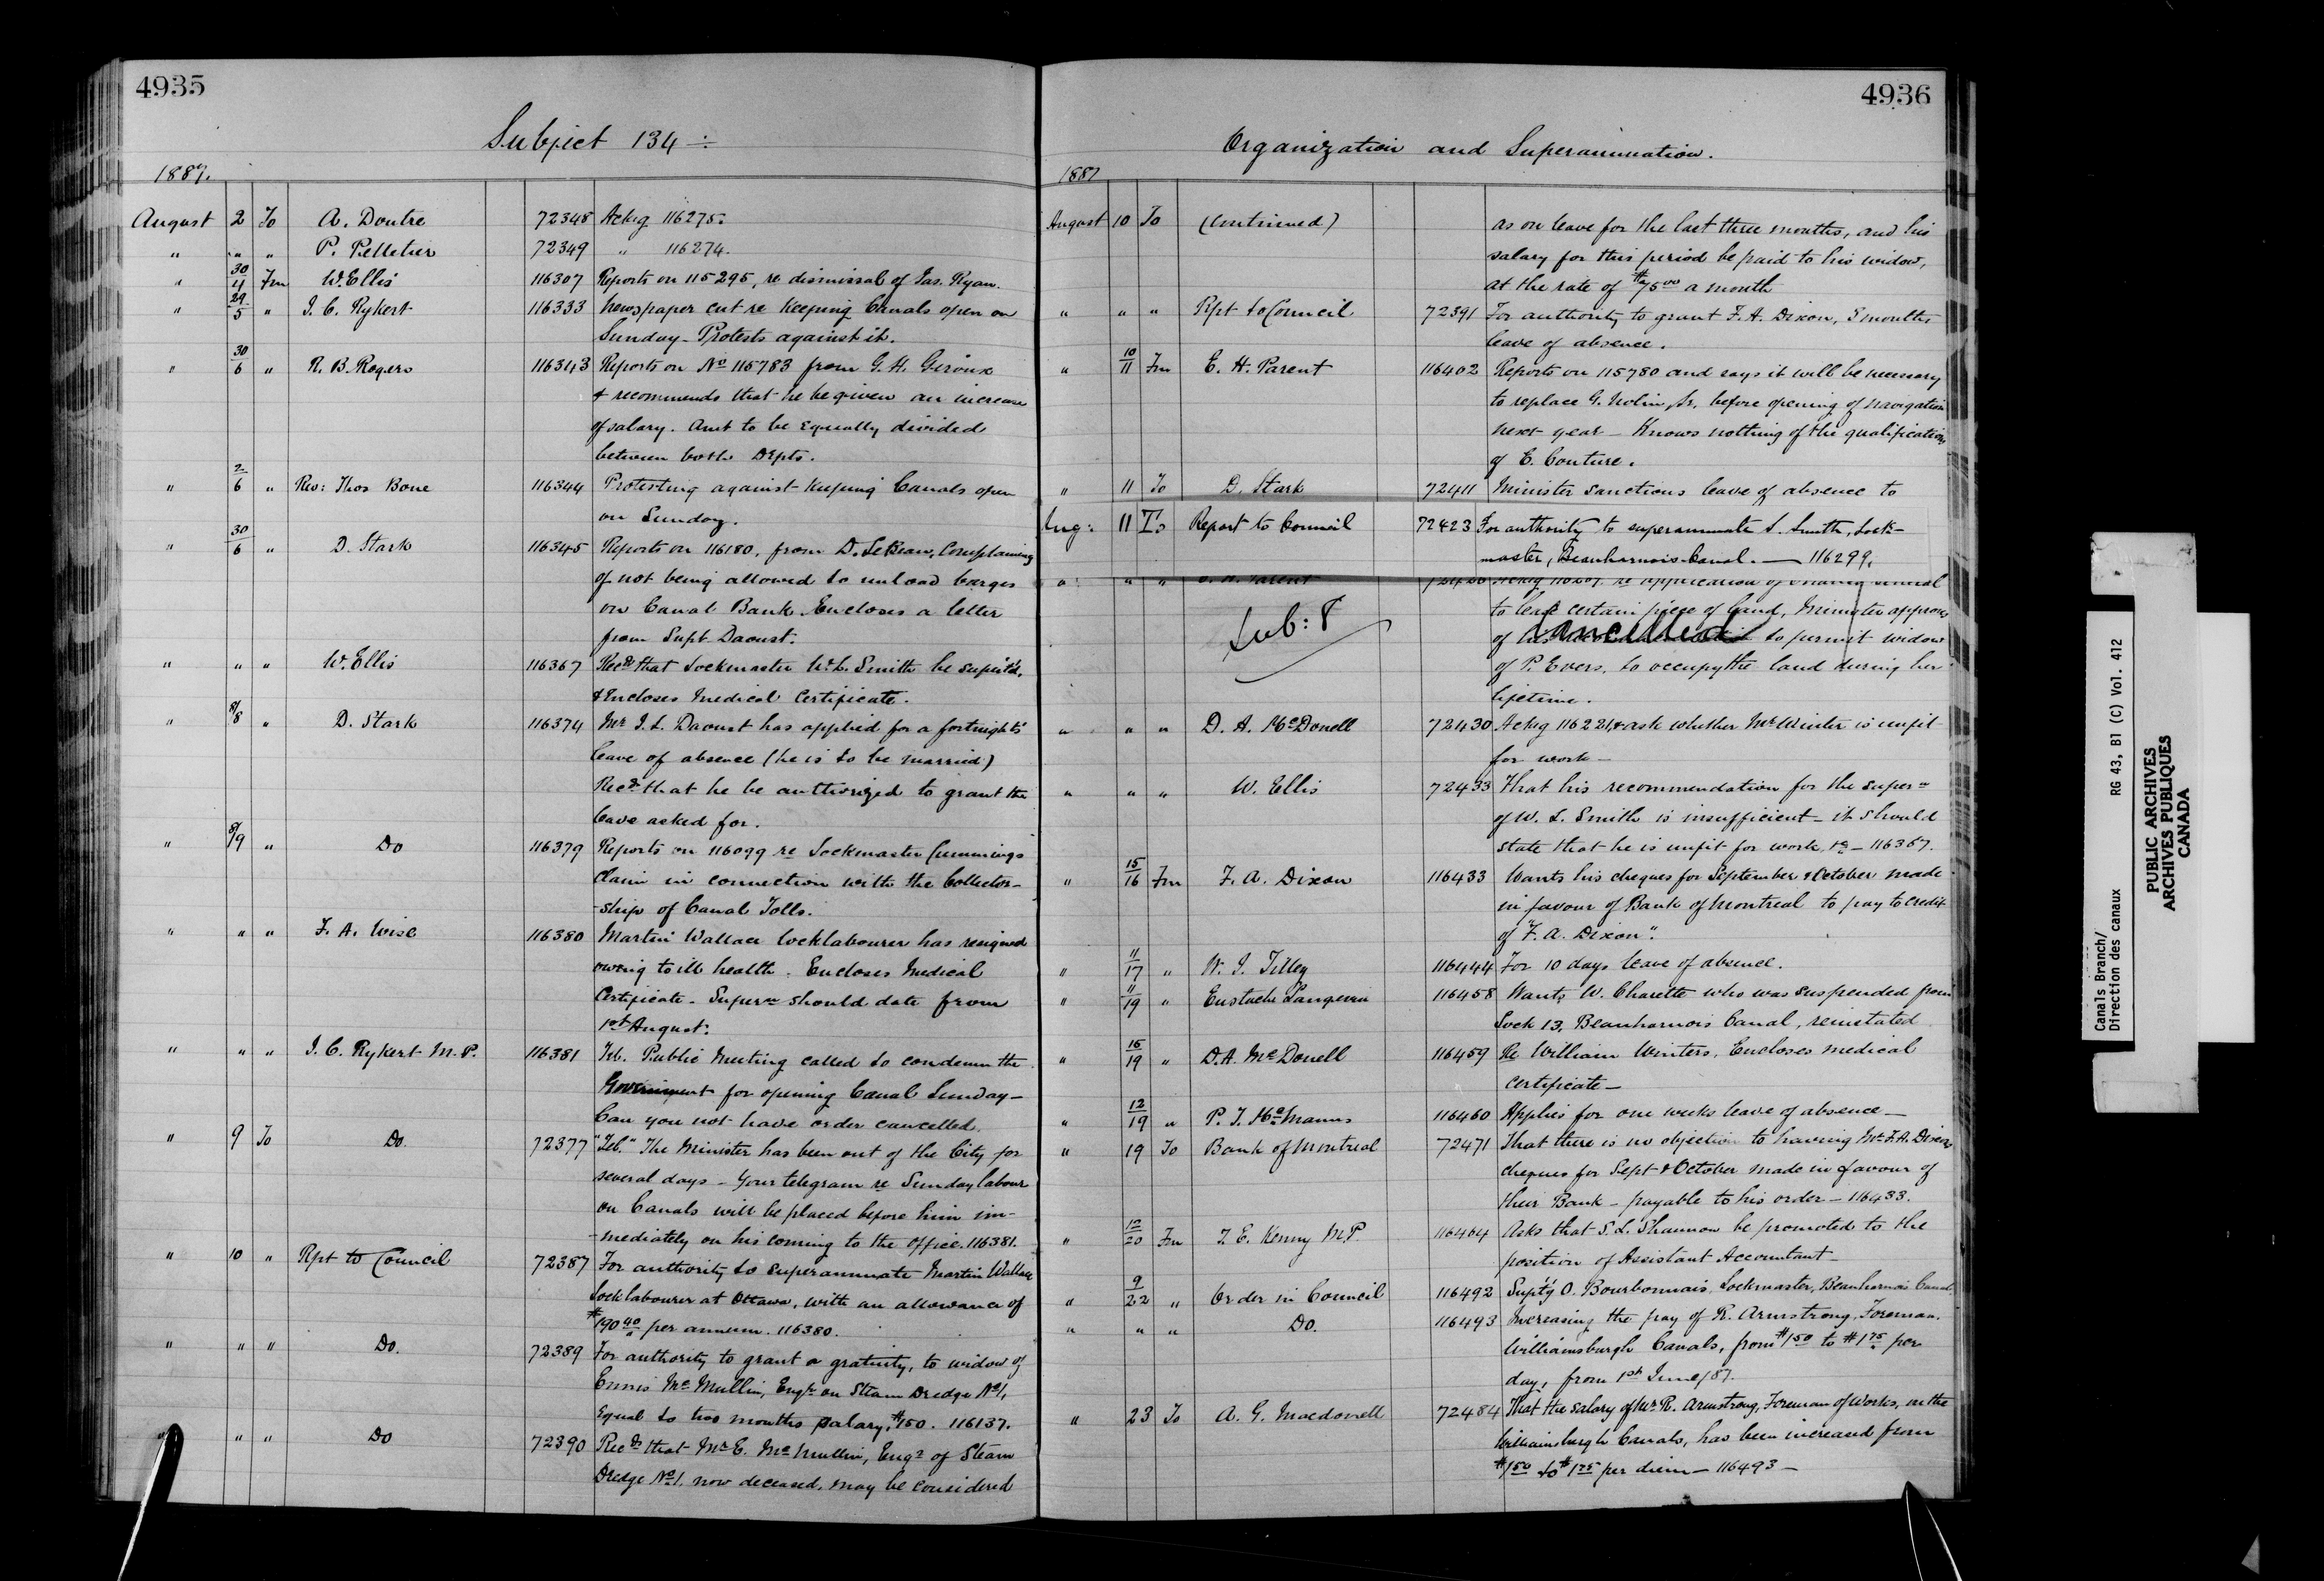 4935
Subject 134 ÷
1887.
August 2 To A. Doutre 72348 Ackg 116275.
" " " P. Pelletier 72349 " 116274.
" 30/4 Fm W. Ellis 116307 Reports on 115295, re dismissal of Jas. Ryan.
" 29/5 " J. C. Rykert 116333 Newspaper cut re keeping Canals open on
Sunday - Protests against it.
" 30/6 " R. B. Rogers 116343 Reports on No 115783 from G. H. Giroux
& recommends that he be given an increase
of salary. Amt to be Equally divided
between both Depts.
" 2/6 " Rev: Thos Bone 116344 Protesting against keeping Canals open
on Sunday.
" 30/6 " D. Stark 116345 Reports on 116180, from D. LeBeau, Complaining
of not being allowed to unload barges
on Canal Bank. Encloses a letter
from Supt Daoust.
" " " W. Ellis 116367 Recds that Lockmaster W. L. Smith be
& Encloses Medical Certificate.
" 8/8 " D. Stark 116374 Mr J. L. Daoust has applied for a fortnight's
leave of absence (he is to be married)
Recds that he be authorized to grant the
leave asked for.
" 8/9 " Do 116379 Reports on 116099 re Lockmaster Cummings
claim in connection with the Collector-
-ship of Canal Tolls.
" " " F. A. Wise 116380 Martin Wallace locklabourer has resigned
owing to ill health. Encloses Medical
Certificate. Superon should date from
1st August.
" " " J. C. Rykert M.P. 116381 Tel. Public Meeting called to condemn the
Government for opening Canal Sunday -
Can you not have order cancelled.
" 9 To Do. 72377 "Tel." The Minister has been out of the City for
several days - Your telegram re Sunday labour
on Canals will be placed before him im-
-mediately on his coming to the office. 116381.
" 10 " Rpt to Council 72387 For authority to superannuate Martin Wallace
Locklabourer at Ottawa, with an allowance of
$190 40 per annum. 116380.
" " " Do. 72389 For authority to grant a gratuity, to widow of
Ennis McMullin, Engr on Steam Dredge No 1,
Equal to two months salary, $150. 116137.
" " " Do 72390 Recds that Mr E. McMullin, Engr of Steam
Dredge No 1, now deceased, may be considered
4936
Organization and Superannuation.
1887
August 10 To (Continued) as on leave for the last three months, and his
salary for this period be paid to his widow,
at the rate of $75 00 a month
" " " Rpt to Council 72391 For authority to grant F. A. Dixon, 3 months
leave of absence.
" 10/11 Fm E. H. Parent 116402 Reports on 115780 and says it will be necessary
to replace G. Nolin, Sr. before opening of navigation
next year - Knows nothing of the qualifications
of E. Couture.
" 11 To D. Stark 72411 Minister sanctions leave of absence to
Aug: 11 To Report to Council 72423 For authority to superannuate S. Smith, Lock-
master, Beauharnois Canal. — 116299.
" " " Parent
to lease certain piece of land, Minister approves
Sub: 8
of his Cancelled to permit widow
of P. Evers, to occupy the land during her
lifetime.
" " " D. A. McDonell 72430 Ackg 116221, & ask whether Mr Winter is unfit
for work -
" " " W. Ellis 72433 That his recommendation for the superon
of W. L. Smith is insufficient - it should
state that he is unfit for work, &c - 116367.
" 15/16 Fm F. A. Dixon 116433 Wants his cheques for September & October made
in favour of Bank of Montreal to pay to credit
of "F. A. Dixon".
" 11/17 " W. J. Tilley 116444 For 10 days leave of absence.
" 11/19 " Eustache Langevin 116458 Wants W. Charette who was suspended from
Lock 13, Beauharnois Canal, reinstated
" 15/19 " D. A. McDonell 116459 Re William Winters. Encloses medical
certificate -
" 12/19 " P. J. McManus 116460 Applies for one weeks leave of absence -
" 19 To Bank of Montreal 72471 That there is no objection to having Mr F. A. Dixons
cheques for Sept & October made in favour of
their Bank - payable to his order - 116433.
" 12/20 Fm T. E. Kenny M.P. 116464 Asks that S. L. Shannon be promoted to the
position of Assistant Accountant -
" 9/22 " Order in Council 116492 O. Bourbonnais, Lockmaster, Beauharnois Canal
" " " Do. 116493 Increasing the pay of R. Armstrong, Foreman,
Williamsburgh Canals, from $1 50 to $1 75 per
day, from 1st June/87.
" 23 To A. G. Macdonell 72484 That the salary of Mr R. Armstrong, Foreman of Works, on the
Williamsburgh Canals, has been increased from
$1 50 to $1 75 per diem - 116493 -
Canals Branch/ RG 43, B1 (C) Vol. 412
Direction des canaux
PUBLIC ARCHIVES
ARCHIVES PUBLIQUES
CANADA